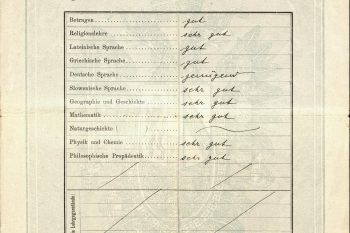 Betragen gut
Religionslehre sehr gut
Lateinische Sprache gut
Griechische Sprache gut
Deutsche Sprache genügend
Slowenische Sprache sehr gut
Geographie und Geschichte sehr gut
Mathematik sehr gut
Naturgeschichte
Physik und Chemie sehr gut
Philosophische Propädeutik sehr gut